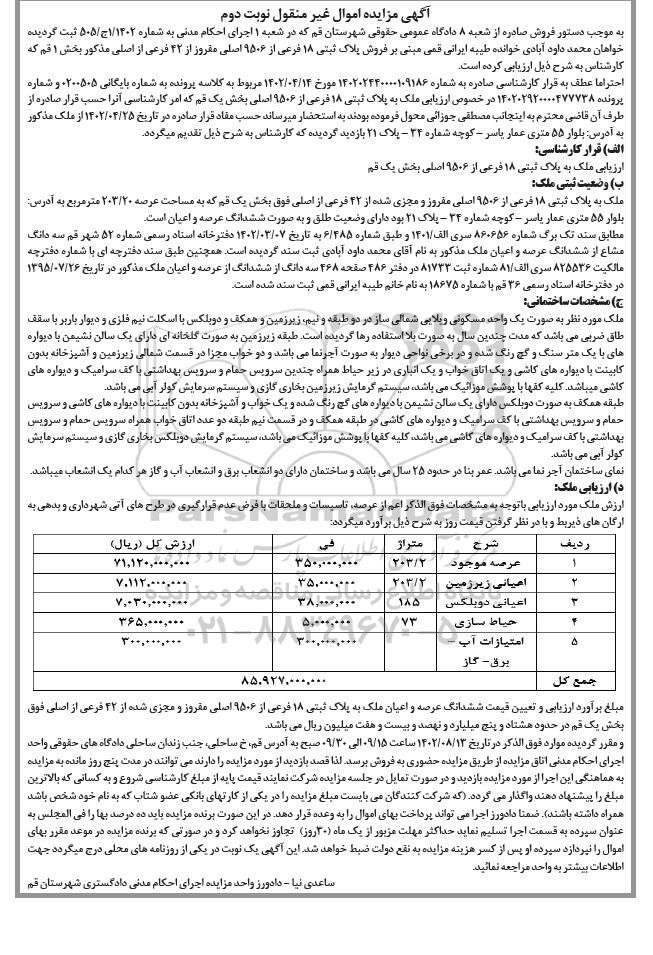 آگهی مزایده اموال غیر منقول نوبت دوم
به موجب دستور فروش صادره از شعبه ۸ دادگاه عمومی حقوقی شهرستان قم که در شعبه ۱ اجرای احکام مدنی به شماره ۱۴۰۲/ج۱/۵۰۵ ثبت گردیده
خواهان محمد داود آبادی خوانده طیبه ایرانی قمی مبنی بر فروش پلاک ثبتی ۱۸ فرعی از ۹۵۰۶ اصلی مفروز از ۴۲ فرعی از اصلی مذکور بخش ۱ قم که
کارشناس به شرح ذیل ارزیابی کرده است.
احتراما عطف به قرار کارشناسی صادره به شماره ۱۴۰۲۰۲۴۴۰۰۰۰۱۰۹۱۸۶ مورخ ۱۴۰۲/۰۴/۱۴ مربوط به کلاسه پرونده به شماره بایگانی ۰۲۰۰۵۰۵ و شماره
پرونده ۱۴۰۲۰۲۹۲۰۰۰۰۴۷۷۷۳۸ در خصوص ارزیابی ملک به پلاک ثبتی ۱۸ فرعی از ۹۵۰۶ اصلی بخش یک قم که امر کارشناسی آنرا حسب قرار صادره از
طرف آن قاضی محترم به اینجانب مصطفی جوزائی محول فرموده بودند به استحضار میرساند حسب مفاد قرار صادره در تاریخ ۱۴۰۲/۰۴/۲۵ از ملک مذکور
به آدرس: بلوار ۵۵ متری عمار یاسر – کوچه شماره ۳۴ – پلاک ۲۱ بازدید گردیده که کارشناس به شرح ذیل تقدیم میگردد.
الف) قرار کارشناسی:
ارزیابی ملک به پلاک ثبتی ۱۸ فرعی از ۹۵۰۶ اصلی بخش یک قم
ب) وضعیت ثبتی ملک:
ملک به پلاک ثبتی ۱۸ فرعی از ۹۵۰۶ اصلی مفروز و مجزی شده از ۴۲ فرعی از اصلی فوق بخش یک قم که به مساحت عرصه ۲۰۳/۲۰ مترمربع به آدرس:
بلوار ۵۵ متری عمار یاسر – کوچه شماره ۳۴ – پلاک ۲۱ بود دارای وضعیت طلق و به صورت ششدانگ عرصه و اعیان است.
مطابق سند تک برگ شماره ۸۶۰۶۵۶ سری الف/۱۴۰۱ و طبق شماره ۶/۴۸۵ به تاریخ ۱۴۰۲/۰۳/۰۷ دفترخانه اسناد رسمی شماره ۵۲ شهر قم سه دانگ
مشاع از ششدانگ عرصه و اعیان ملک مذکور به نام آقای محمد داود آبادی ثبت سند گردیده است. همچنین طبق سند دفترچه ای با شماره دفترچه
مالکیت ۸۲۵۵۳۶ سری الف/۸۱ شماره ثبت ۸۱۷۳۳ در دفتر ۴۸۶ صفحه ۴۶۸ سه دانگ از ششدانگ از عرصه و اعیان ملک مذکور در تاریخ ۱۳۹۵/۰۷/۲۶
در دفترخانه اسناد رسمی ۳۶ قم با شماره ۱۸۶۷۵ به نام خانم طیبه ایرانی قمی ثبت سند شده است.
ج) مشخصات ساختمانی:
ملک مورد نظر به صورت یک واحد مسکونی ویلایی شمالی ساز در دو طبقه و نیم، زیرزمین و همکف و دوبلکس با اسکلت نیم فلزی و دیوار باربر با سقف
طاق ضربی می باشد که مدت چندین سال به صورت بلا استفاده رها گردیده است. طبقه زیرزمین به صورت گلخانه ای دارای یک سالن نشیمن با دیواره
های با یک متر سنگ و گچ رنگ شده و در برخی نواحی دیوار به صورت آجرنما می باشد و دو خواب مجزا در قسمت شمالی زیرزمین و آشپزخانه بدون
کابینت با دیواره های کاشی و یک اتاق خواب و یک انباری در زیر حیاط همراه چندین سرویس حمام و سرویس بهداشتی با کف سرامیک و دیواره های
کاشی میباشد. کلیه کفها با پوشش موزائیک می باشد، سیستم گرمایش زیرزمین بخاری گازی و سیستم سرمایش کولر آبی می باشد.
طبقه همکف به صورت دوبلکس دارای یک سالن نشیمن با دیواره های گچ رنگ شده و یک خواب و آشپزخانه بدون کابینت با دیواره های کاشی و سرویس
حمام و سرویس بهداشتی با کف سرامیک و دیواره های کاشی در طبقه همکف و در قسمت نیم طبقه دو عدد اتاق خواب همراه سرویس حمام و سرویس
بهداشتی با کف سرامیک و دیواره های کاشی می باشد، کلیه کفها با پوشش موزائیک می باشد، سیستم گرمایش دوبلکس بخاری گازی و سیستم سرمایش
کولر آبی می باشد.
نمای ساختمان آجر نما می باشد. عمر بنا در حدود ۲۵ سال می باشد و ساختمان دارای دو انشعاب برق و انشعاب آب و گاز هر کدام یک انشعاب میباشد.
د) ارزیابی ملک:
ارزش ملک مورد ارزیابی باتوجه به مشخصات فوق الذکر اعم از عرصه، تاسیسات و ملحقات با فرض عدم قرارگیری در طرح های آتی شهرداری و بدهی به
ارگان های ذیربط و با در نظر گرفتن قیمت روز به شرح ذیل برآورد میگردد:
ردیف شرح متراژ فی ارزش کل (ریال)
۱ عرصه موجود ۲۰۳/۲ ۳۵۰,۰۰۰,۰۰۰ ۷۱,۱۲۰,۰۰۰,۰۰۰
۲ اعیانی زیرزمین ۲۰۳/۲ ۳۵,۰۰۰,۰۰۰ ۷,۱۱۲,۰۰۰,۰۰۰
۳ اعیانی دوبلکس ۱۸۵ ۳۸,۰۰۰,۰۰۰ ۷,۰۳۰,۰۰۰,۰۰۰
۴ حیاط سازی ۷۳ ۵,۰۰۰,۰۰۰ ۳۶۵,۰۰۰,۰۰۰
۵ امتیازات آب – ۳۰۰,۰۰۰,۰۰۰ ۳۰۰,۰۰۰,۰۰۰
برق- گاز
جمع کل ۸۵,۹۲۷,۰۰۰,۰۰۰
مبلغ برآورد ارزیابی و تعیین قیمت ششدانگ عرصه و اعیان ملک به پلاک ثبتی ۱۸ فرعی از ۹۵۰۶ اصلی مفروز و مجزی شده از ۴۲ فرعی از اصلی فوق
بخش یک قم در حدود هشتاد و پنج میلیارد و نهصد و بیست و هفت میلیون ریال می باشد.
و مقرر گردیده موارد فوق الذکر در تاریخ ۱۴۰۲/۰۸/۱۳ ساعت ۰۹/۱۵ الی ۰۹/۳۰ صبح به آدرس قم، خ ساحلی، جنب زندان ساحلی دادگاه های حقوقی واحد
اجرای احکام مدنی اتاق مزایده از طریق مزایده حضوری به فروش برسد. لذا قصد بازدید از مورد مزایده را دارند می توانند در مدت پنج روز مانده به مزایده
به هماهنگی این اجرا از مورد مزایده بازدید و در صورت تمایل در جلسه مزایده شرکت نمایند قیمت پایه از مبلغ کارشناسی شروع و به کسانی که بالاترین
مبلغ را پیشنهاد دهند واگذار می گردد. (که شرکت کنندگان می بایست مبلغ مزایده را در یکی از کارتهای بانکی عضو شتاب که به نام خود شخص باشد
همراه داشته باشند). ضمنا دادورز اجرا می تواند پرداخت بهای اموال را به وعده قرار دهد. در این صورت برنده مزایده باید ده درصد بها را فی المجلس به
عنوان سپرده به قسمت اجرا تسلیم نماید حداکثر مهلت مزبور از یک ماه (۳۰ روز) تجاوز نخواهد کرد و در صورتی که برنده مزایده در موعد مقرر بهای
اموال را نپردازد سپرده او پس از کسر هزینه مزایده به نفع دولت ضبط خواهد شد. این آگهی یک نوبت در یکی از روزنامه های محلی درج میگردد جهت
اطلاعات بیشتر به واحد مراجعه نمائید.
ساعدی نیا – دادورز واحد مزایده اجرای احکام مدنی دادگستری شهرستان قم
ParsNamadData
پایگاه اطلاع رسانی مناقصه و مزایده
۰۲۱-۸۸۳۴۹۶۷۰-۵